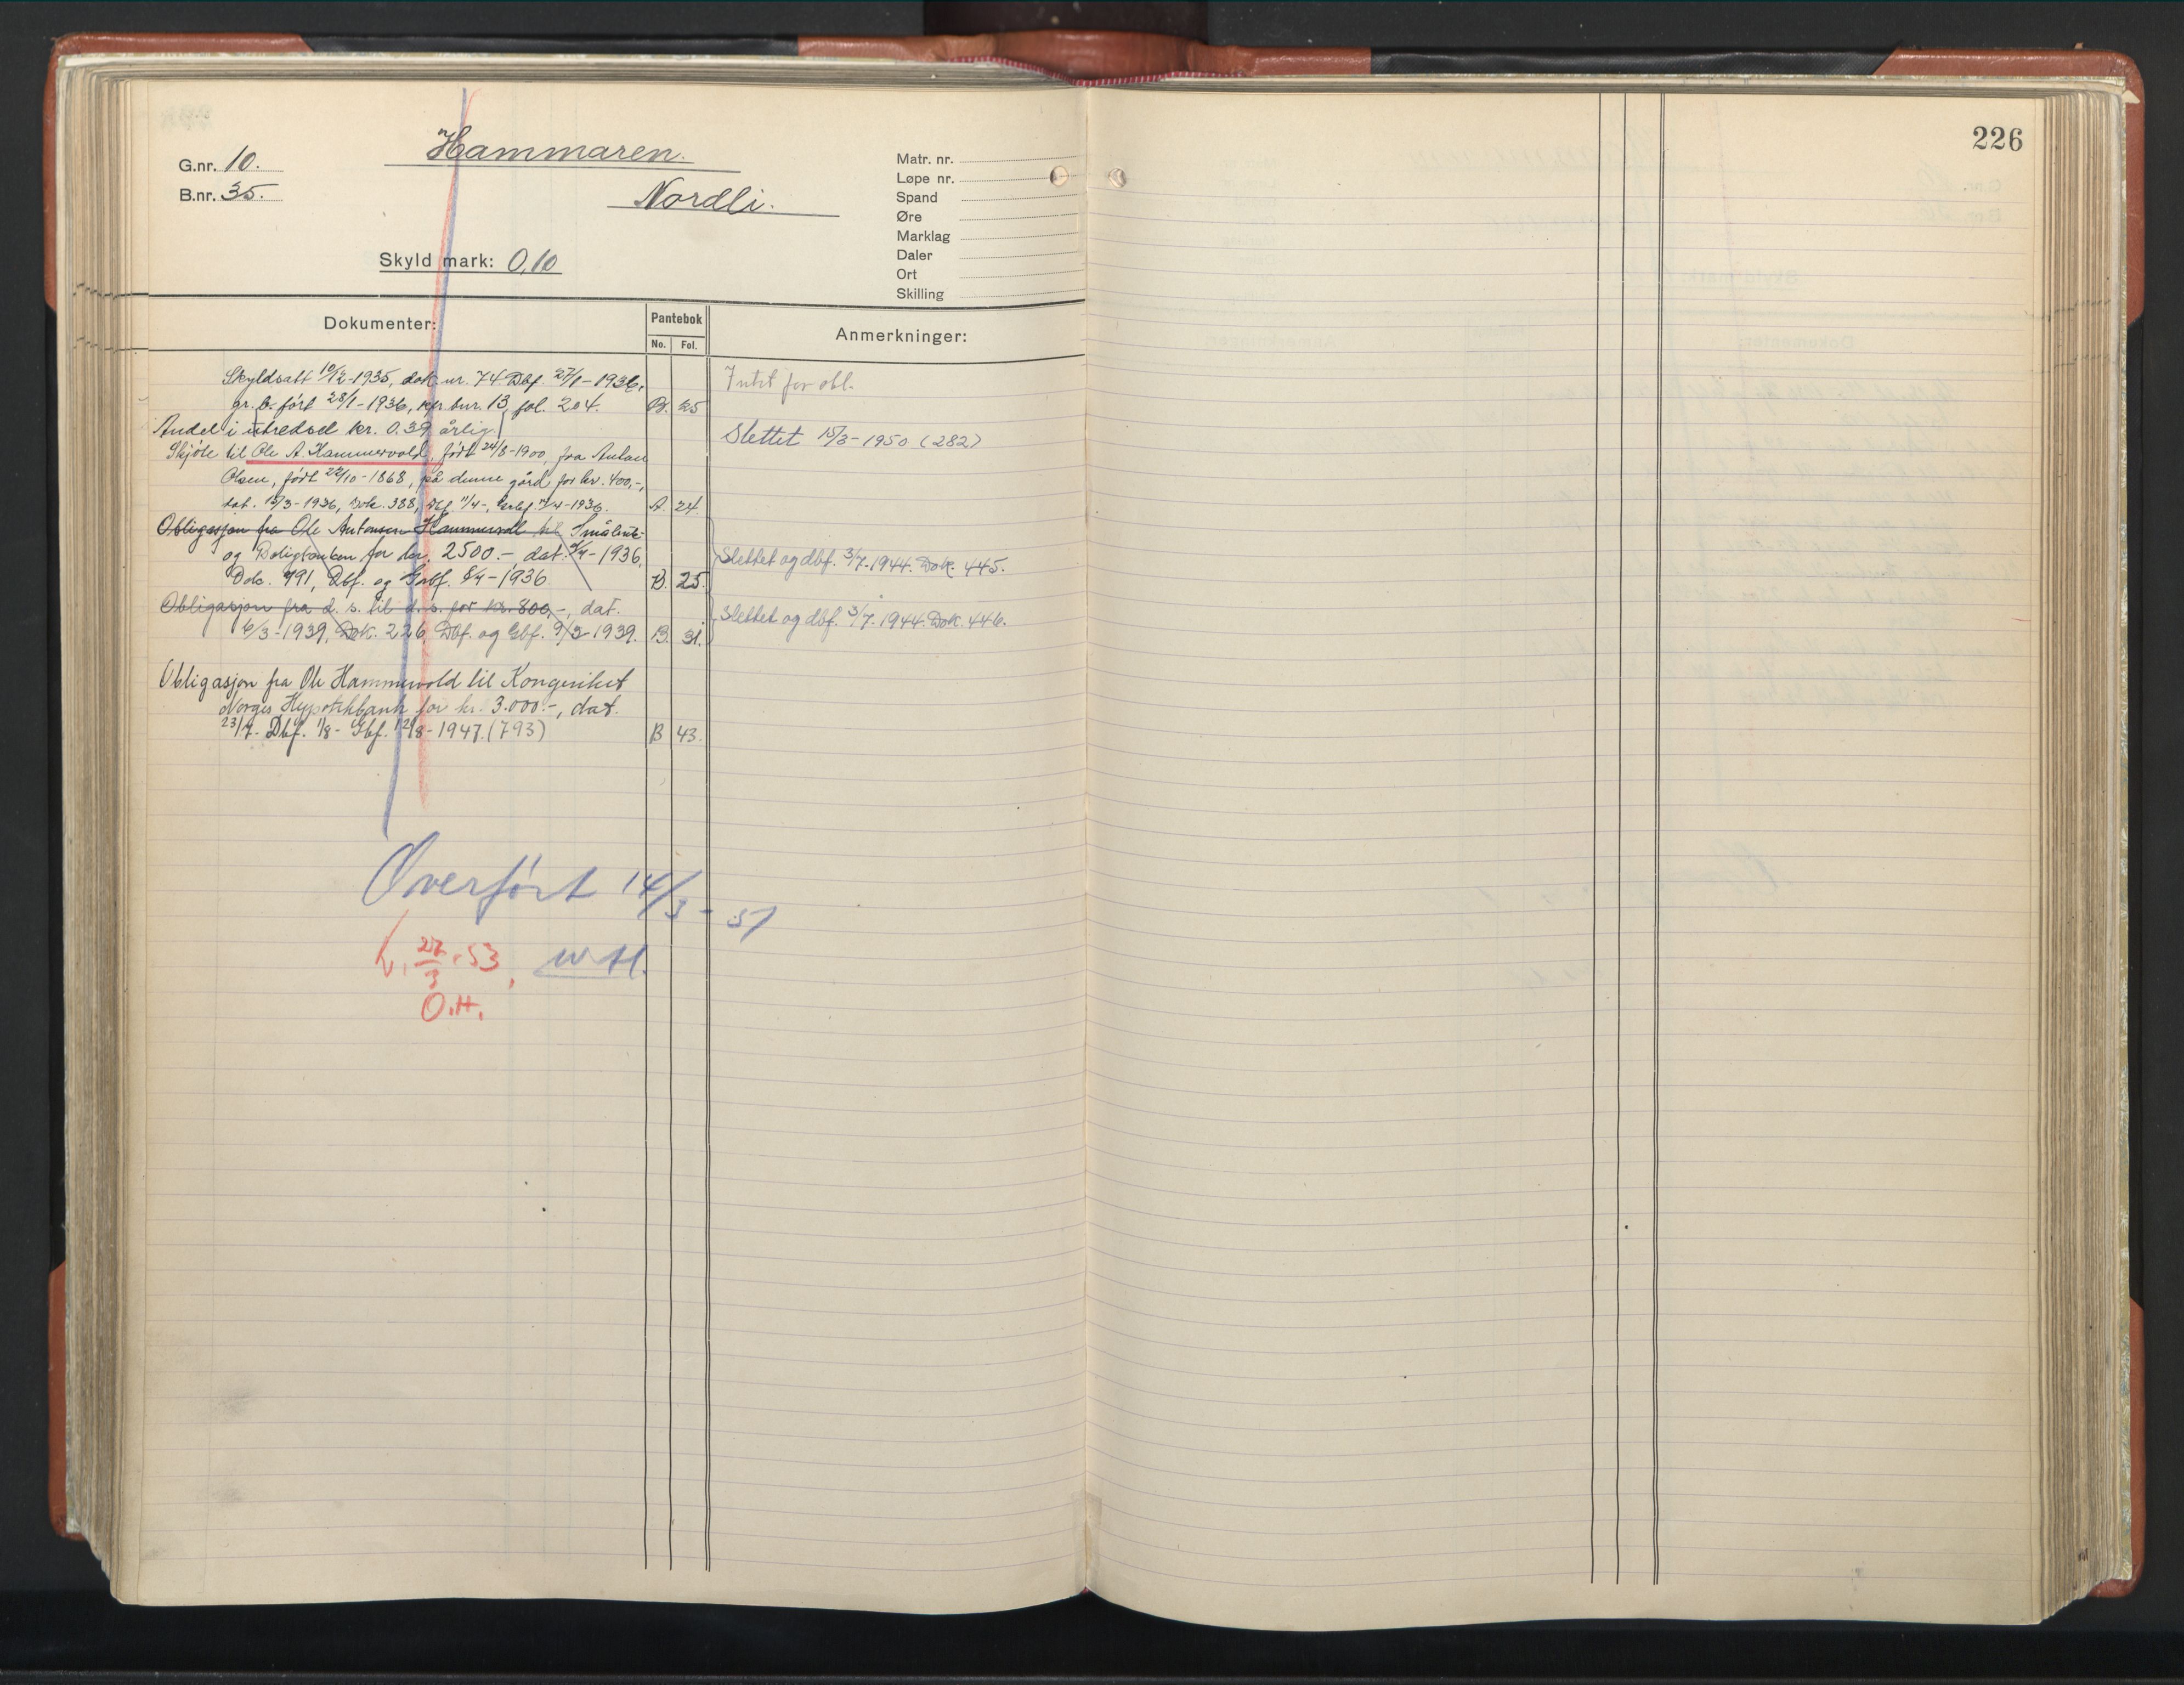 226
G.nr. 10.
B.nr. 35.
Hammaren.
Nordli.
Skyld mark: 0,10
Matr. nr.
Løpe nr.
Spand
Øre
Marklag
Daler
Ort
Skilling
Dokumenter:
Pantebok
No. Fol.
Anmerkninger:
Skyldsatt 10/12-1935, dok. nr. 74. Dbf. 27/1-1936,
gr. b. ført 28/1-1936, bnr. 13, fol. 204. B. 25
Intet for obl.
Andel i utredsel kr. 0.39 årlig
Slettet 15/3-1950 (282)
Skjöte til Ole A. Hammervold, født 24/8-1900, fra Anton
Olsen, født 22/10-1868, på denne gård for kr. 400,-,
dat. 15/3-1936, Dok. 388, Dbf. 11/4-, 1936. A. 24
Obligasjon fra Ole Antonsen Hammervoll til Småbruk-
og Boligbanken for kr. 2500.- dat. 1936,
Dok. 491, Dbf. og Gbf. 1936. B. 25.
Slettet og dbf. 3/7-1944. Dok. 445.
Obligasjon fra d. s. til d. s. for kr. 800,-, dat.
6/3-1939, Dok. 226, Dbf. og Gbf. 9/3-1939. B. 31.
Slettet og dbf. 3/7-1944. Dok. 446.
Obligasjon fra Ole Hammervold til Kongeriket
Norges Hypotekbank for kr. 3.000.-, dat.
23/7- Dbf. 1/8- Gbf. 12/8-1947. (793) B 43.
Overført 14/3-51
27/3-53, W H.
O.H.